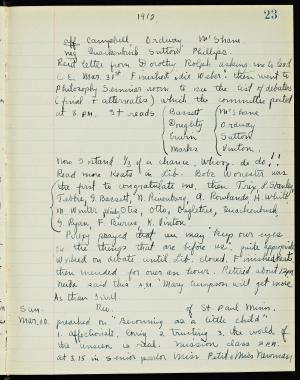 1912 23
aff Campbell Ordway McShane.
neg Quackenbush Sutton Phillips.
Read letter from Dorothy Rolph asking me to lead
C.E. Mar. 31st. Finished "die Weber." Then went to
Philosophy Seminar room to see the list of debaters
(final & alternates) which the committee posted
at 8 P.M. It reads
Bassett McShane
Doughty Ordway
Sutton
Marks Vinton.
Now I stand 1/3 of a chance, Whoop. de do!!
Read more Keats in Lib. Bob Worcester was
the first to congratulate me, then Trix J. Stanley,
J. Bassett, A. Rowlands, H. White
M. Winter, Otis, Otto, Quackenbush,
G. Ryan, F. K. Vinton.
Prexy prayed that we may keep our eyes
on the things that are before us. quite appropriate
Worked on debate until Lib. closed. Finished
then mended for over an hour. Retired about 12 P.M.
said this P.M. Mary Simpson will get more
As than I will.
Sun. Mar. 10. Rev. of St Paul Minn.
preached on "Becoming as a little child"
1. affectionate, loving 2 trusting 3. the world of
the unseen is real. Mission class 2 P.M.
at 3.15 in Senior parlor Miss Pettee & Miss Newman